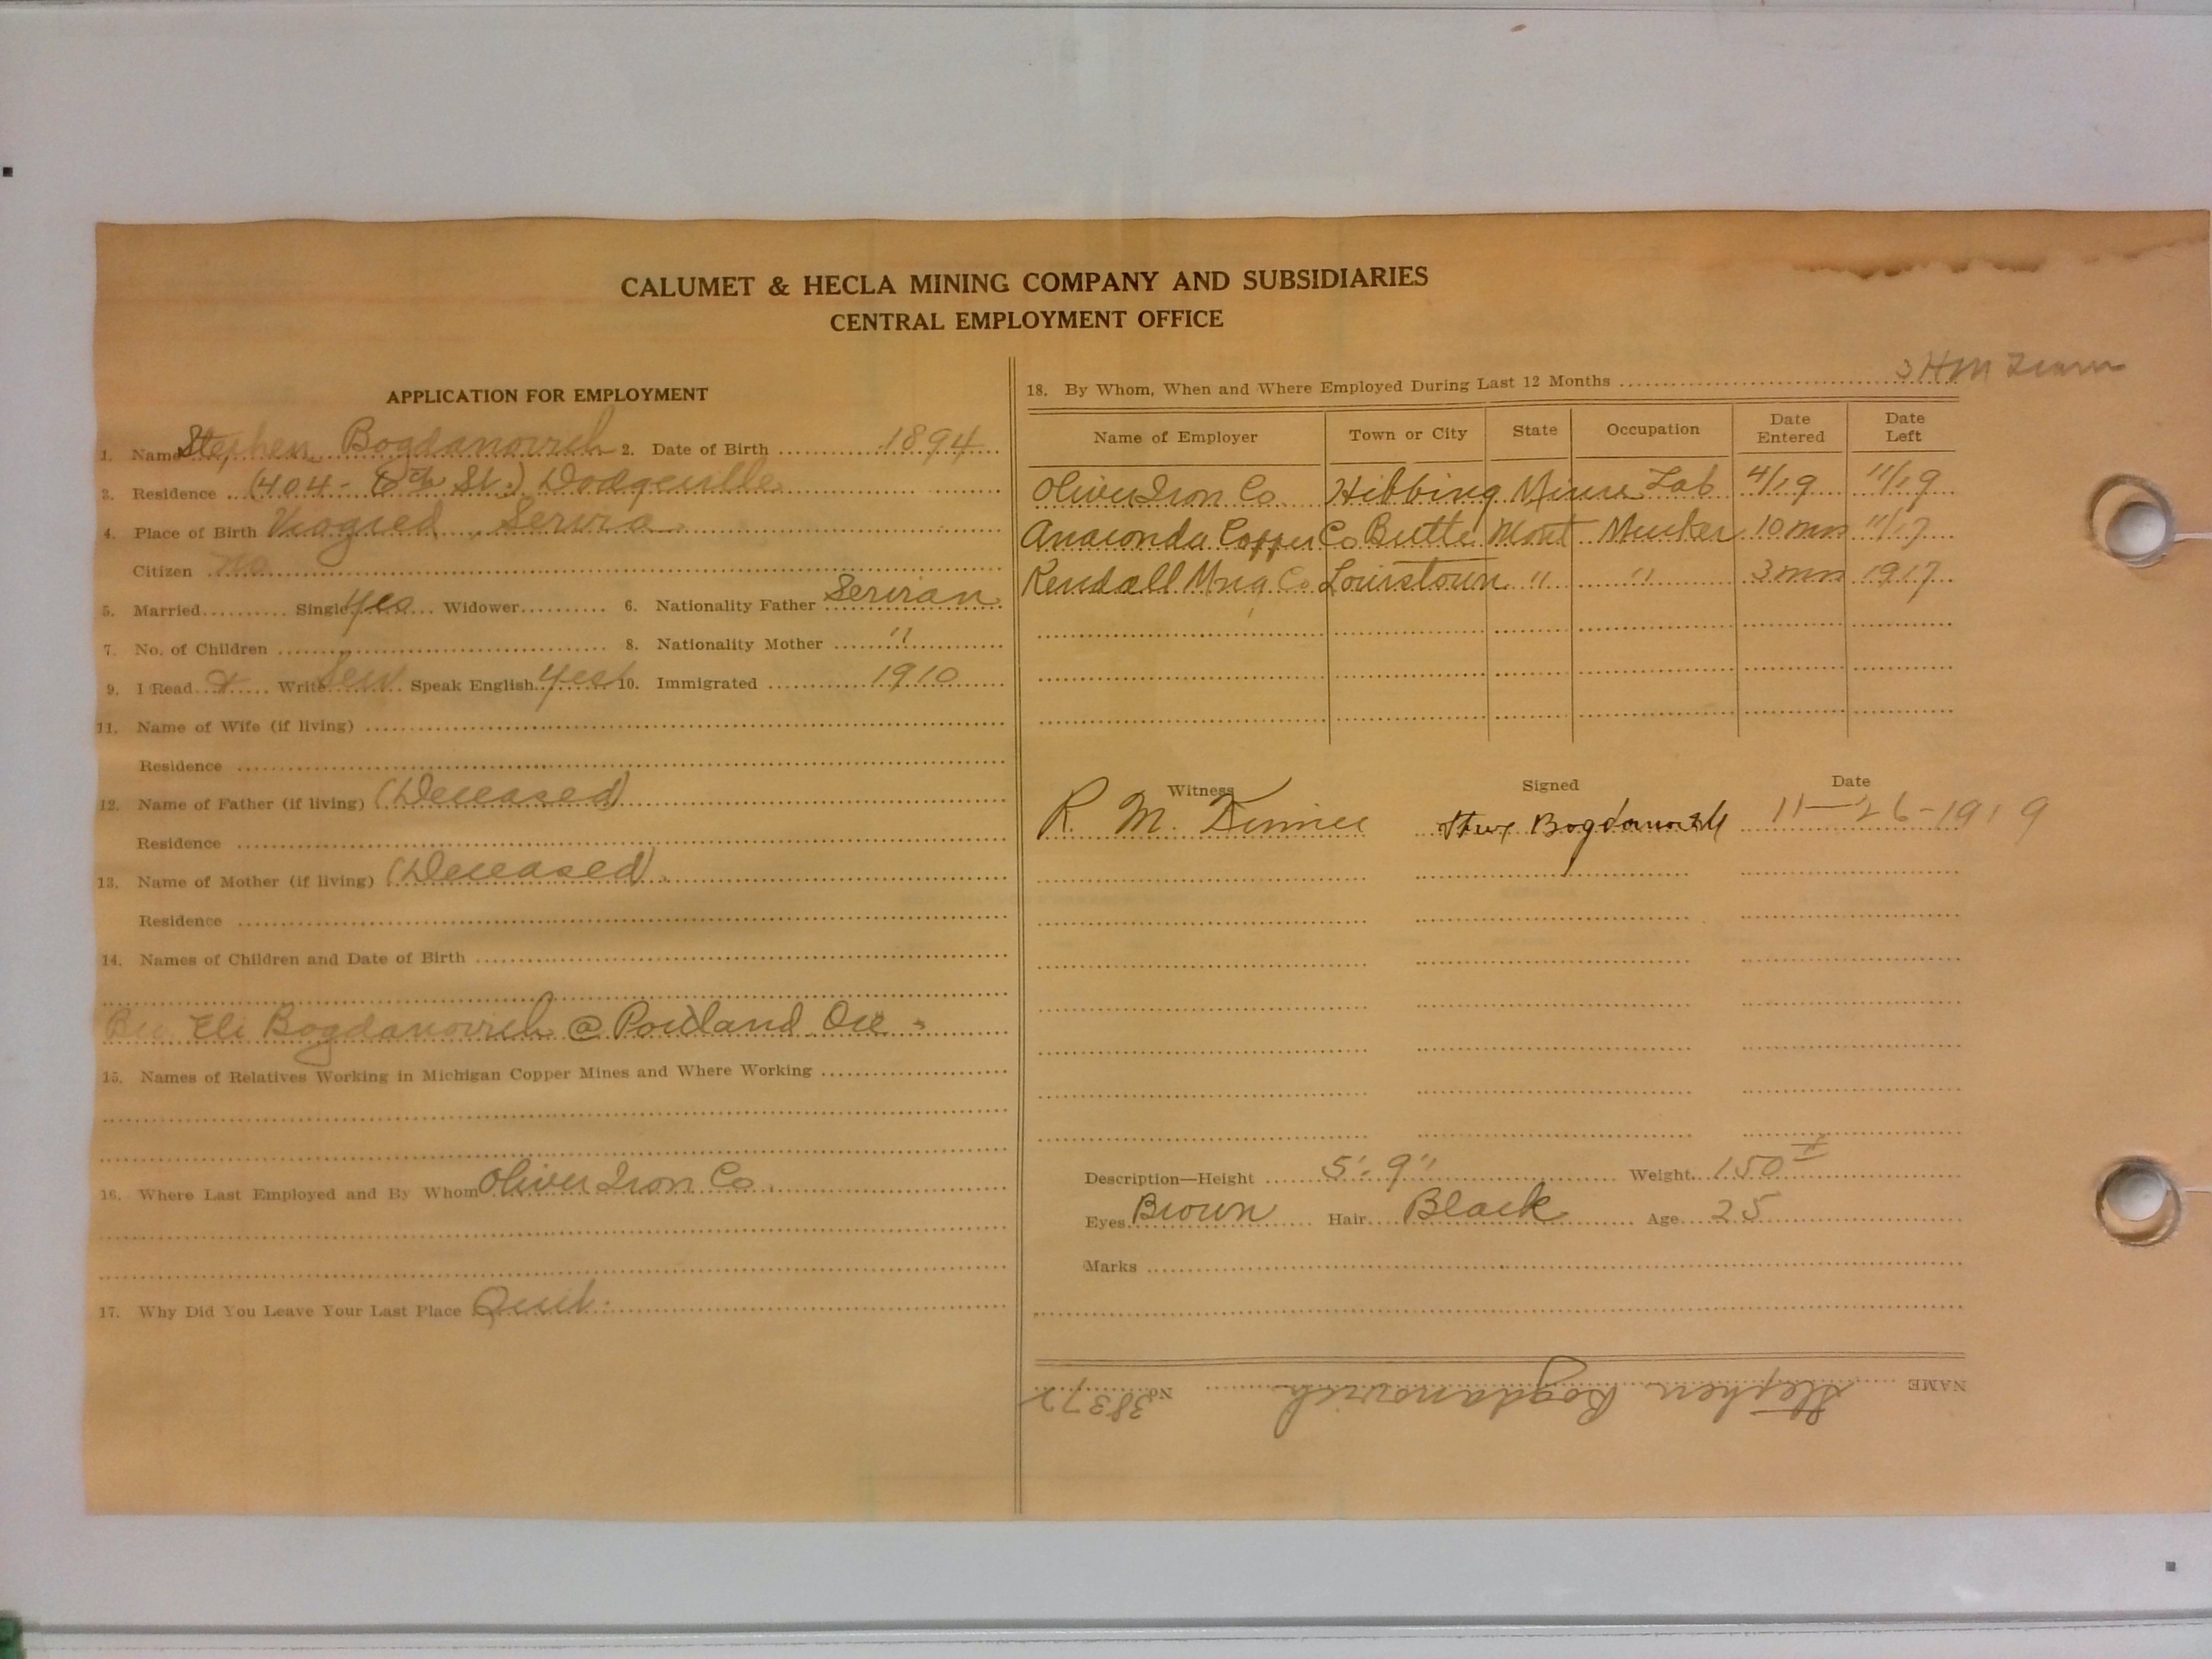 CALUMET & HECLA MINING COMPANY AND SUBSIDIARIES
CENTRAL EMPLOYMENT OFFICE
APPLICATION FOR EMPLOYMENT
1. Name Stephen Bogdanovich 2. Date of Birth 1894
3. Residence (404 - 6th St.) Dodgeville
4. Place of Birth Servia
Citizen No
5. Married Single Yes Widower 6. Nationality Father Servian
7. No. of Children 8. Nationality Mother "
9. I Read & Write Serv Speak English Yes 10. Immigrated 1910
11. Name of Wife (if living)
Residence
12. Name of Father (if living) (Deceased)
Residence
13. Name of Mother (if living) (Deceased)
Residence
14. Names of Children and Date of Birth
Eli Bogdanovich @ Portland Ore -
15. Names of Relatives Working in Michigan Copper Mines and Where Working
16. Where Last Employed and By Whom Oliver Iron Co.
17. Why Did You Leave Your Last Place Quit.
18. By Whom, When and Where Employed During Last 12 Months
Name of Employer Town or City State Occupation Date Entered Date Left
Oliver Iron Co. Hibbing Minn Lab 4/19 11/19
Anaconda Copper Co Butte Mont Mucker 10 mn 11/17
Kendall Mng Co Louistown " " 3 mn 1917
Witness Signed Date
R. M. Bogdanovich 11-26-1919
Description—Height 5' 9" Weight 150
Eyes Brown Hair Black Age 25
Marks
NAME Stephen Bogdanovich No. 38372